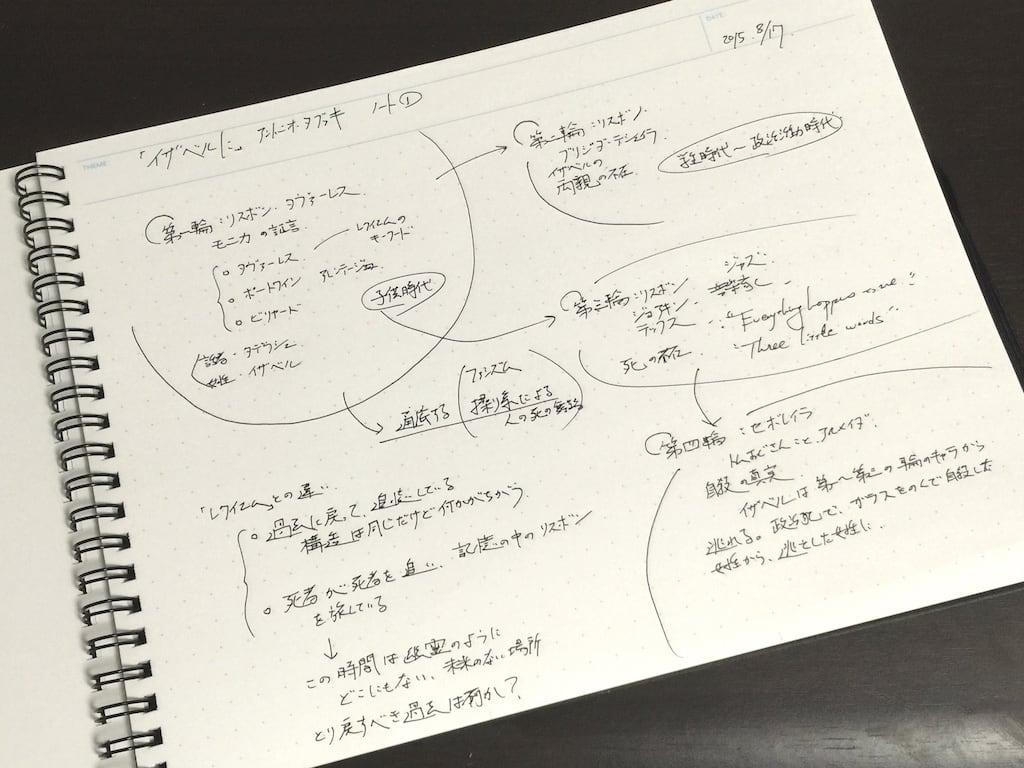 DATE
2015. 8/17
THEME
「イザベルに」 アントニオ・タブッキ ノート①
第一輪：リスボン. タヴァーレス
モニカ の証言
レクイエムの
キーワード
○ タヴァーレス
○ ポートワイン アレンテージョ
○ ビリヤード
子供時代
話者 タデウシュ
女性 イザベル
第二輪：リスボン.
ブリジダ・テシェイラ
イザベルの
両親の不在
学生時代〜政治活動時代
第三輪：リスボン ジャズ.
ジョアキン. 音楽家し
テックス — :"Everything happens to me":
"Three little words".
死の不在
通底する
ファシズム
操り糸による
人の死の無効
第四輪：セボレイラ
トムおじさんこと、アルメイダ.
自殺の真実
イザベルは第一〜第三の輪のキャラから
逃れる。政治犯で、ガラスをのんで自殺した
女性から、逃亡した女性に.
「レクイエム」との違い.
○ 過去に戻って追憶している
構造は同じだけど何かがちがう
○ 死者が死者を追い、記憶の中のリスボン
を旅している
↓
この時間は幽霊のように
どこにもない、未来のない場所
とり戻すべき過去は何か？